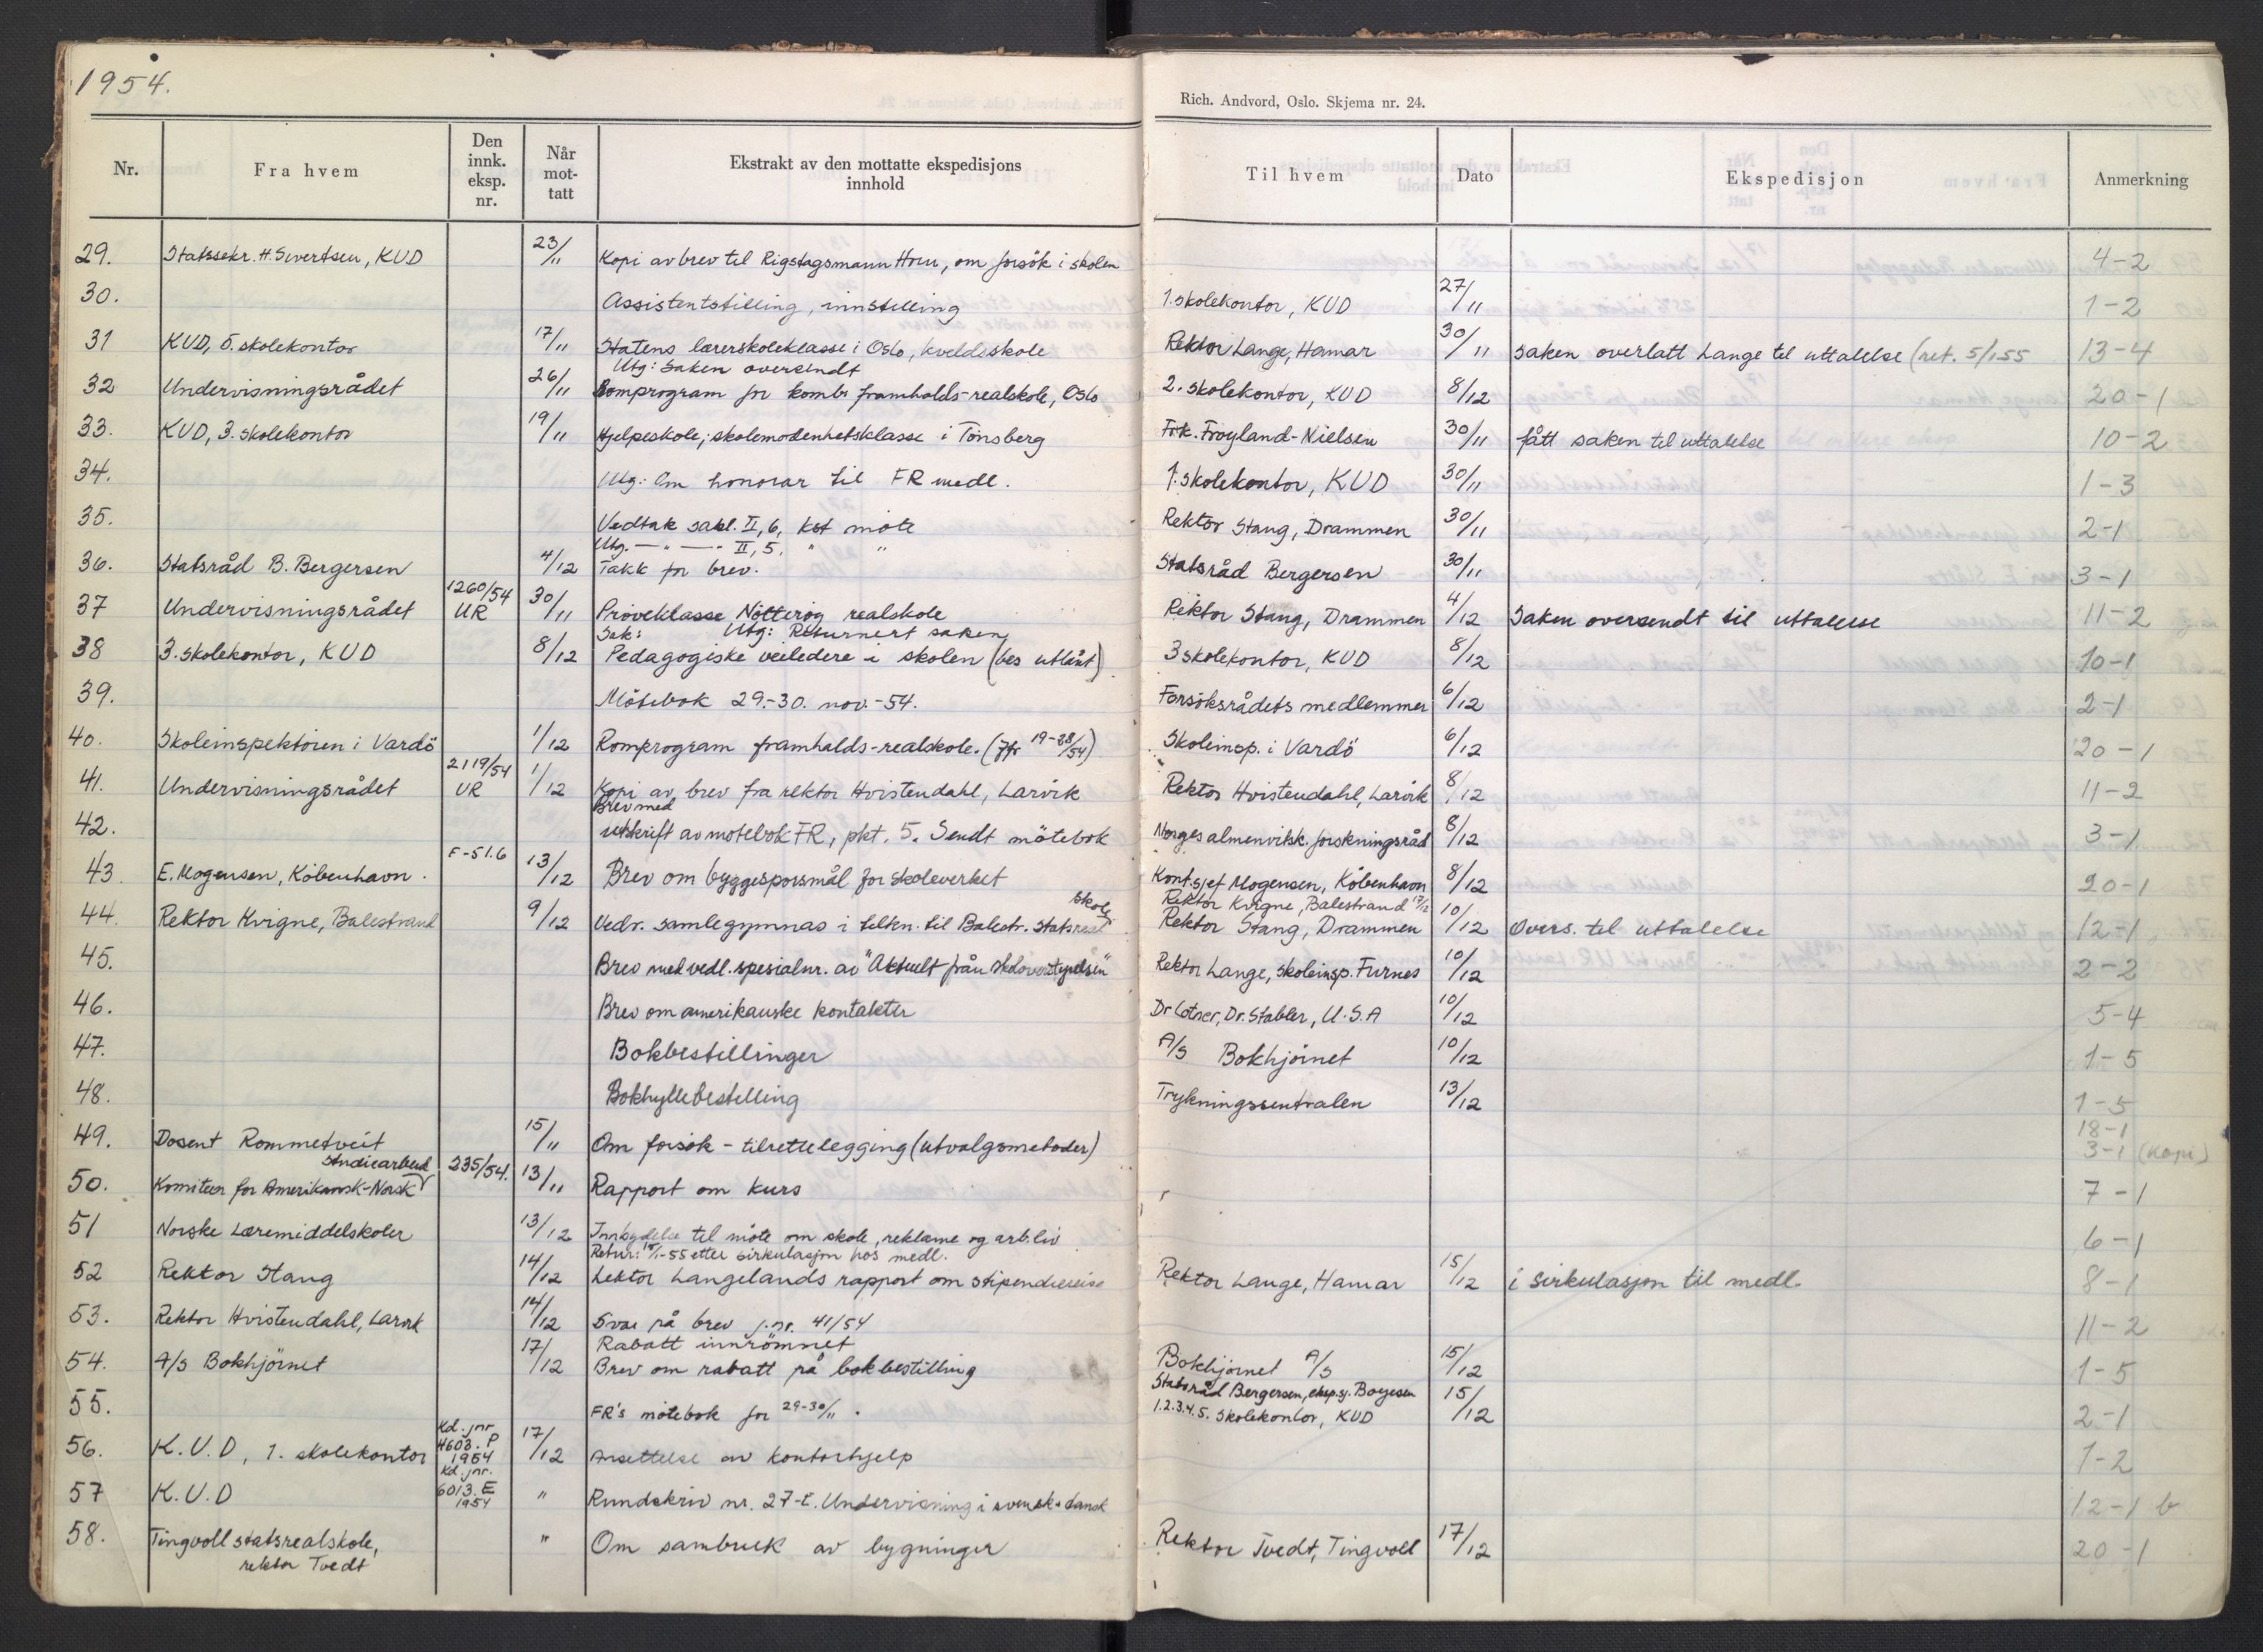 1954.
Rich. Andvord, Oslo. Skjema nr. 24.
Nr. Fra hvem Den innk. eksp. nr. Når mot-tatt Ekstrakt av den mottatte ekspedisjons innhold Til hvem Dato Ekspedisjon Anmerkning
29. Statssekr. H. Sivertsen, KUD 23/11 Kopi av brev til Rigstagsmann Horn, om forsök i skolen 4-2
30. Assistentstilling, innstilling 1. skolekontor, KUD 27/11 1-2
31 KUD, 5. skolekontor 17/11 Statens lærerskoleklasse i Oslo, kveldsskole Rektor Lange, Hamar 30/11 saken overlatt Lange til uttalelse (ret. 5/1-55 13-4
Utg: Saken oversendt
32 Undervisningsrådet 26/11 Romprogram for komb. framhalds-realskole, Oslo 2. skolekontor, KUD 8/12 20-1
33. KUD, 3. skolekontor 19/11 Hjelpeskole; skolemodenhetsklasse i Tönsberg Frk. Frøyland-Nielsen 30/11 fått saken til uttalelse 10-2
34. Utg: Om honorar til FR medl. 1. skolekontor, KUD 30/11 1-3
35. Vedtak sakl. II, 6, kst möte Rektor Stang, Drammen 30/11 2-1
Utg. — " — " II, 5, " "
36. Statsråd B. Bergersen 4/12 Takk for brev. Statsråd Bergersen 30/11 3-1
37 Undervisningsrådet 1260/54 UR 30/11 Pröveklasse Nötteröy realskole Rektor Stang, Drammen 4/12 Saken oversendt til uttalelse 11-2
Sak: Utg: Returnert saken
38 3. skolekontor, KUD 8/12 Pedagogiske veiledere i skolen (bes utlånt) 3 skolekontor, KUD 8/12 10-1
39. Mötebok 29.-30. nov.-54. Forsöksrådets medlemmer 6/12 2-1
40. Skoleinspektören i Vardö 1/12 Romprogram framhalds-realskole. (Jfr 19-28/54) Skoleinsp. i Vardö 6/12 20-1
41. Undervisningsrådet 2119/54 UR 1/12 Kopi av brev fra rektor Hvistendahl, Larvik Rektor Hvistendahl, Larvik 8/12 11-2
Brev med
42. utskrift av motebok FR, pkt. 5. Sendt mötebok Norges almenvitsk. forskningsråd 8/12 3-1
43. E. Mogensen, Köbenhavn. F-51.6 13/12 Brev om byggesporsmål for skoleverket Kont.sjef Mogensen, Köbenhavn 8/12 20-1
Rektor Kvigne, Balestrand 17/12
44. Rektor Kvigne, Balestrand 9/12 Vedr. samlegymnas i tilkn. til Balestr. Statsreal skole Rektor Stang, Drammen 10/12 Overs. til uttalelse 12-1
45. Brev med vedl. spesialnr. av "Aktuelt från skolöverstyrelsen" Rektor Lange, skoleinsp. Furnes 10/12 2-2
46. Brev om amerikanske kontakter Dr Cotner, Dr. Stabler, U.S.A 10/12 5-4
47. Bokbestillinger A/S Bokhjörnet 10/12 1-5
48. Bokhyllebestilling Trykningssentralen 13/12 1-5
49. Dosent Rommetveit 15/11 Om forsök - tilrettelegging (utvalgsmetoder) 18-1
3-1 (kopi)
50. Komiteen for Amerikansk-Norsk studiearbeid 235/54. 13/11 Rapport om kurs 7-1
51 Norske Læremiddelskoler 13/12 Innbydelse til möte om skole, reklame og arb.liv 6-1
Retur: 10/1-55 etter sirkulasjon hos medl.
52 Rektor Stang 14/12 Lektor Langelands rapport om stipendiereise Rektor Lange, Hamar 15/12 i sirkulasjon til medl. 8-1
53. Rektor Hvistendahl, Larvik 14/12 Svar på brev j.nr. 41/54 11-2
Rabatt innrömmet
54. A/S Bokhjörnet 17/12 Brev om rabatt på bokbestilling Bokhjörnet A/S 15/12 1-5
55. FR's mötebok for 29-30/11. Statsråd Bergersen, eksp.sj. Boyesen 1.2.3.4.5. skolekontor, KUD 15/12 2-1
56. K.U.D, 1. skolekontor Kd. jnr 4603. P 1954 17/12 Ansettelse av kontorhjelp 1-2
57 K.U.D Kd. jnr. 6013. E 1954 " Rundskriv nr. 27-E. Undervisning i svensk + dansk 12-1 b
58. Tingvoll statsrealskole, " Om sambruk av bygninger Rektor Tvedt, Tingvoll 17/12 20-1
rektor Tvedt